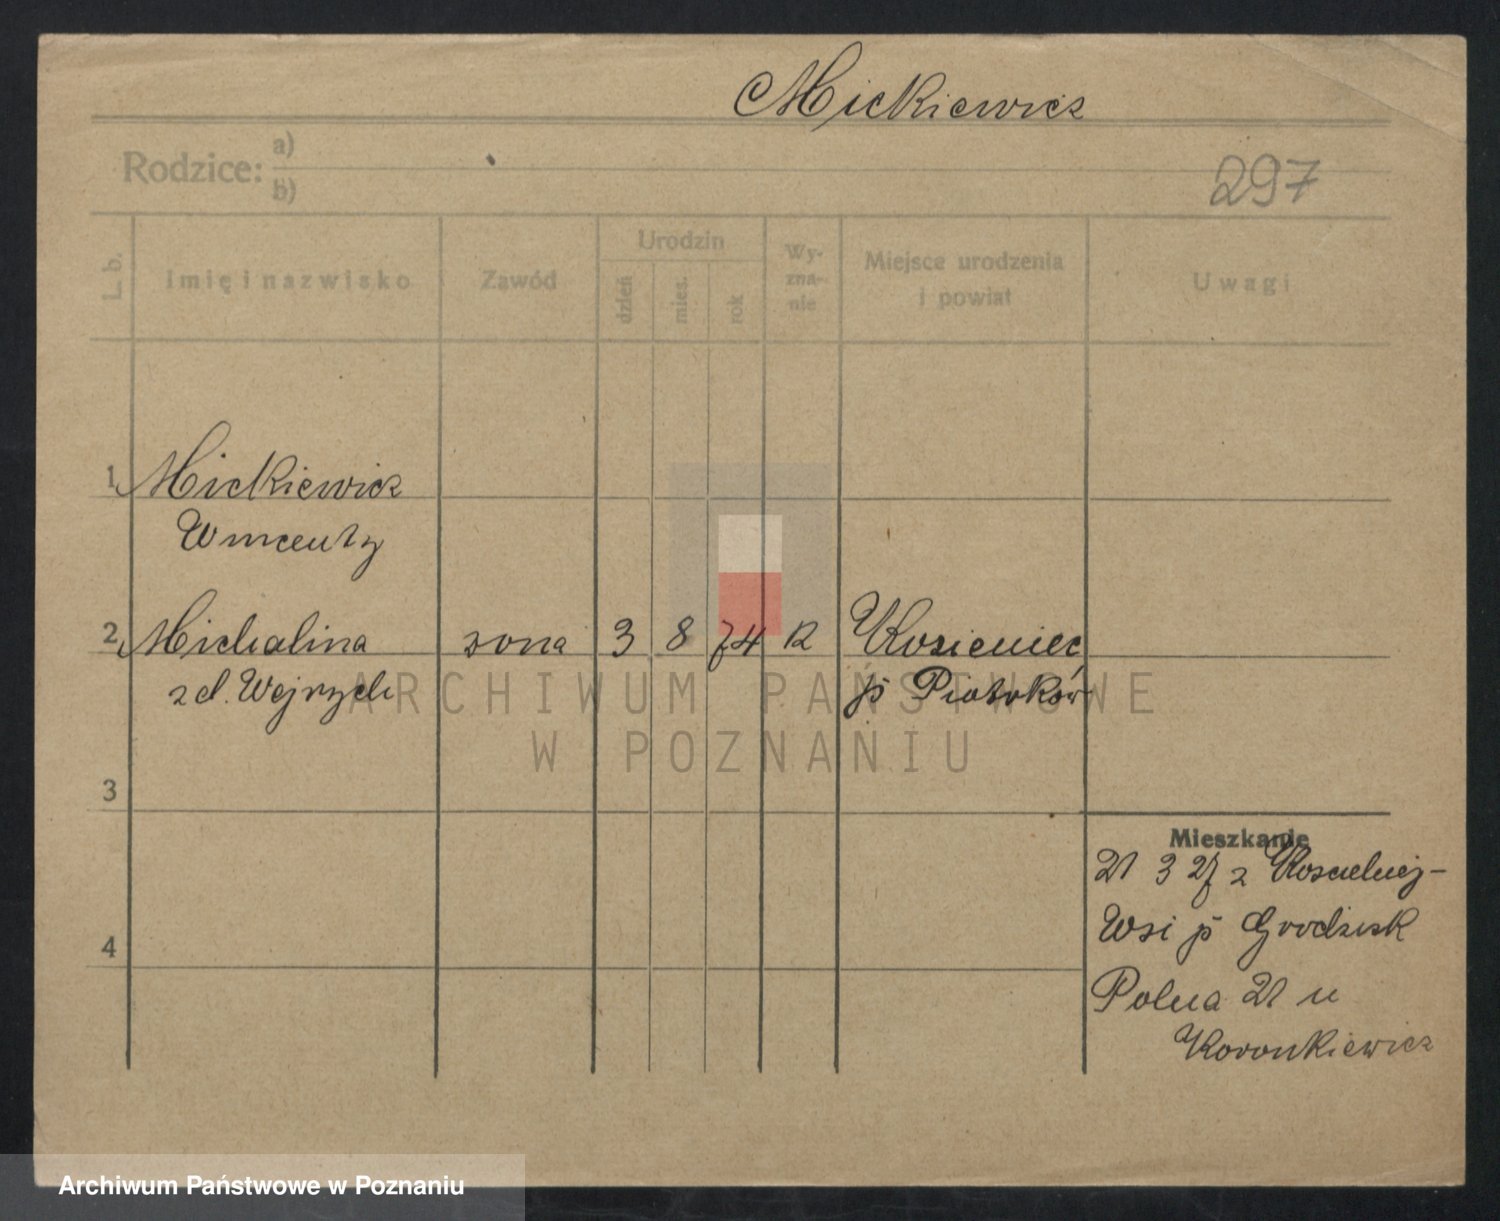 Mickiewicz
Rodzice: a)
b)
297
L. b.
Imię i nazwisko
Zawód
Urodzin
dzień
mies.
rok
Wy-
zna-
nie
Miejsce urodzenia
i powiat
Uwagi
1 Mickiewicz
Wincenty
2 Michalina żona 3 8 74 R
zd. p Piotrków
ARCHIWUM PAŃSTWOWE
W POZNANIU
3
Mieszkanie
21 3 27 z Koscielnej-
4
Wsi p Grodzisk
Polna 21 u
Koronkiewicz
Archiwum Państwowe w Poznaniu